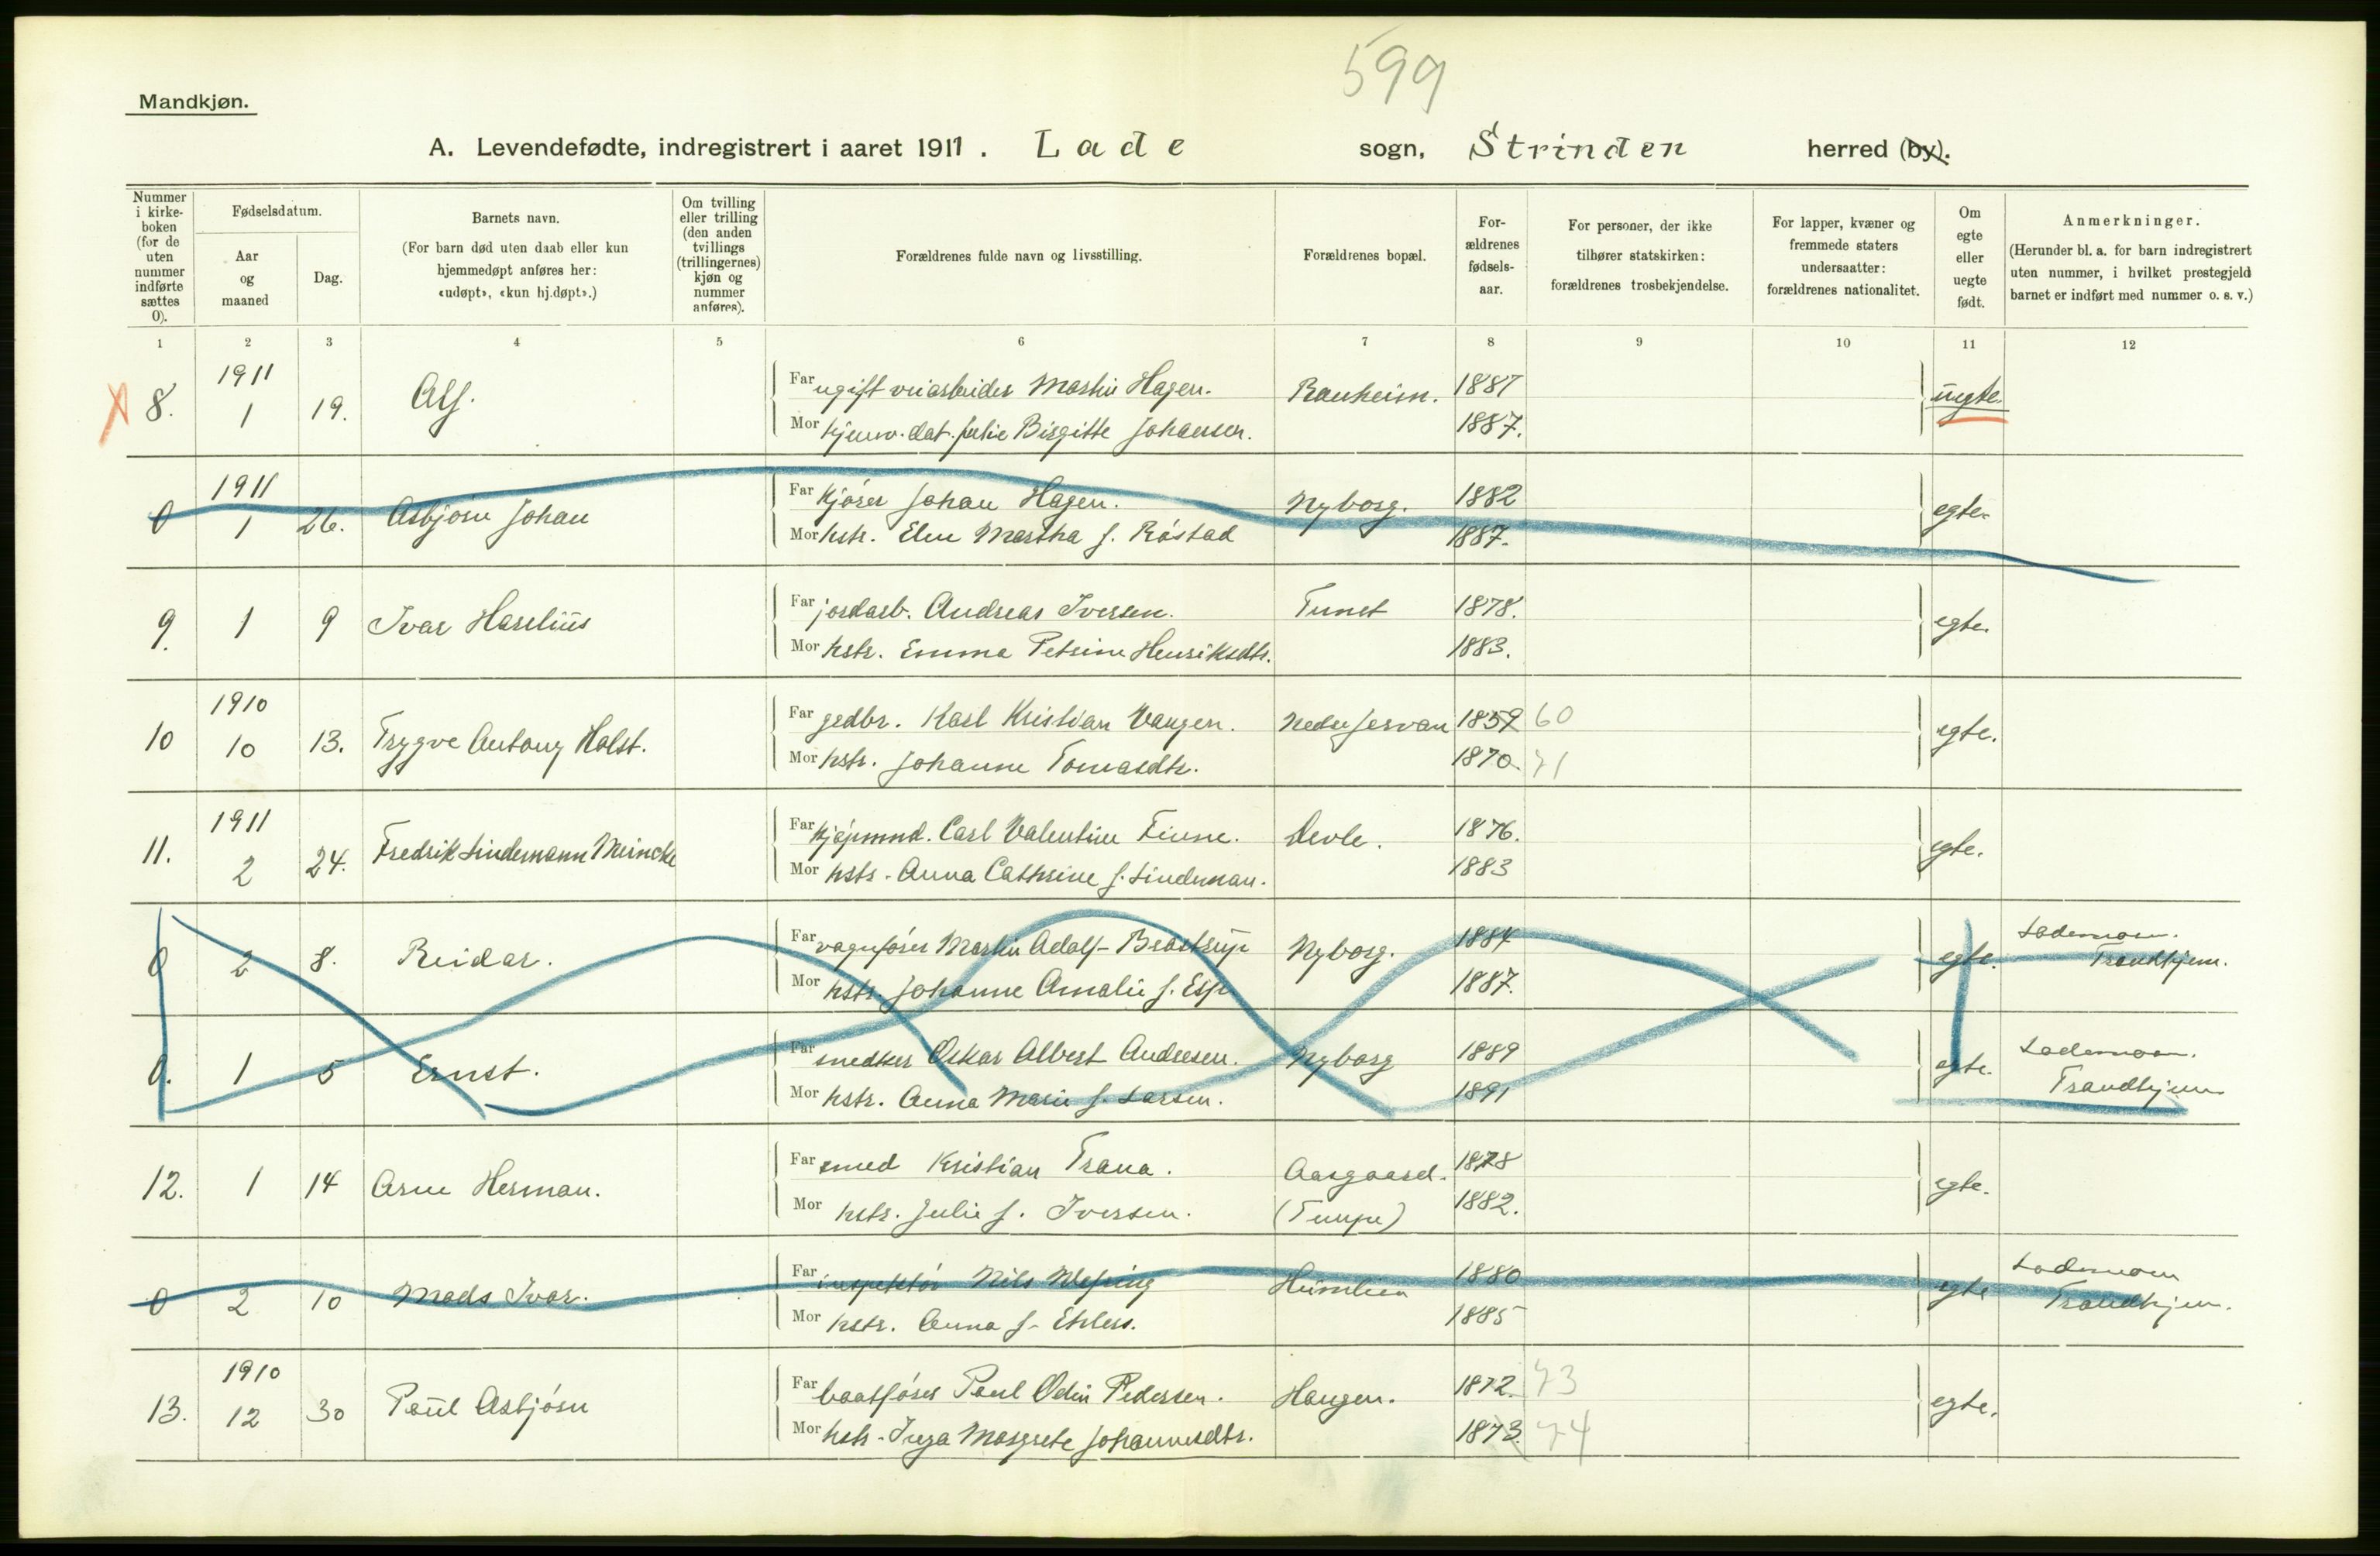 599
Mandkjøn.
A. Levendefødte, indregistrert i aaret 1911. Lade sogn, Strinden herred (by).
Nummer i kirke-boken (for de uten nummer indførte sættes 0).
Fødselsdatum.
Aar og maaned
Dag.
Barnets navn.
(For barn død uten daab eller kun hjemmedøpt anføres her: «udøpt», «kun hj.døpt».)
Om tvilling eller trilling (den anden tvillings (trillingernes) kjøn og nummer anføres).
Forældrenes fulde navn og livsstilling.
Forældrenes bopæl.
For-ældrenes fødsels-aar.
For personer, der ikke tilhører statskirken: forældrenes trosbekjendelse.
For lapper, kvæner og fremmede staters undersaatter: forældrenes nationalitet.
Om egte eller uegte født.
Anmerkninger.
(Herunder bl. a. for barn indregistrert uten nummer, i hvilket prestegjeld barnet er indført med nummer o. s. v.)
1 2 3 4 5 6 7 8 9 10 11 12
8. 1911 1 19. Alf. Far ugift veiarbeider Martin Hagen. Ranheim. 1887 uegte.
Mor hjemv. dat. Julie Birgitte Johansen. 1887.
0 1911 1 26. Asbjørn Johan Far kjører Johan Hagen. Nyborg. 1882 egte.
Mor hstr. Elen Martha f. Røstad 1887.
9. 1 9 Ivar Haselius Far jordarb. Andreas Iversen. Tunet 1878. egte.
Mor hstr. Emma Petrine Henriksdtr. 1883.
10 1910 10 13. Trygve Antony Holst. Far gedbr. Karl Kristian Vangen. Nedre Jervan 1859 60 egte.
Mor hstr. Johanne Tomasdtr. 1870. 71
11. 1911 2 24. Fredrik Lindemann Meincke Far kjøpmnd. Carl Valentin Finne. Devle. 1876. egte.
Mor hstr. Anna Cathrine f. Lindeman. 1883
0 2 8. Reidar. Far vognfører Martin Adolf Brostrup Nyborg. 1884 egte. Lademoen. Trondhjem.
Mor hstr. Johanne Amalie f. Esp 1887.
0. 1 5 Ernst. Far snedker Oskar Albert Andresen. Nyborg 1889 egte. Lademoen. Trondhjem
Mor hstr. Anna Marie f. Larsen. 1891
12. 1 14 Arne Herman. Far smed Kristian Trana. Aargaard. 1878 egte.
Mor hstr. Julie f. Iversen. (Tunge) 1882.
0 2 10 Mads Ivar. Far inspektør Nils Wessing Humlien 1880 egte Lademoen Trondhjem.
Mor hstr. Anna f. Ehlers. 1885
13. 1910 12 30 Paul Asbjørn Far baatfører Paul Odin Pedersen. Haugen. 1872. 73 egte.
Mor hstr. Inga Margrete Johannesdtr. 1873. 74